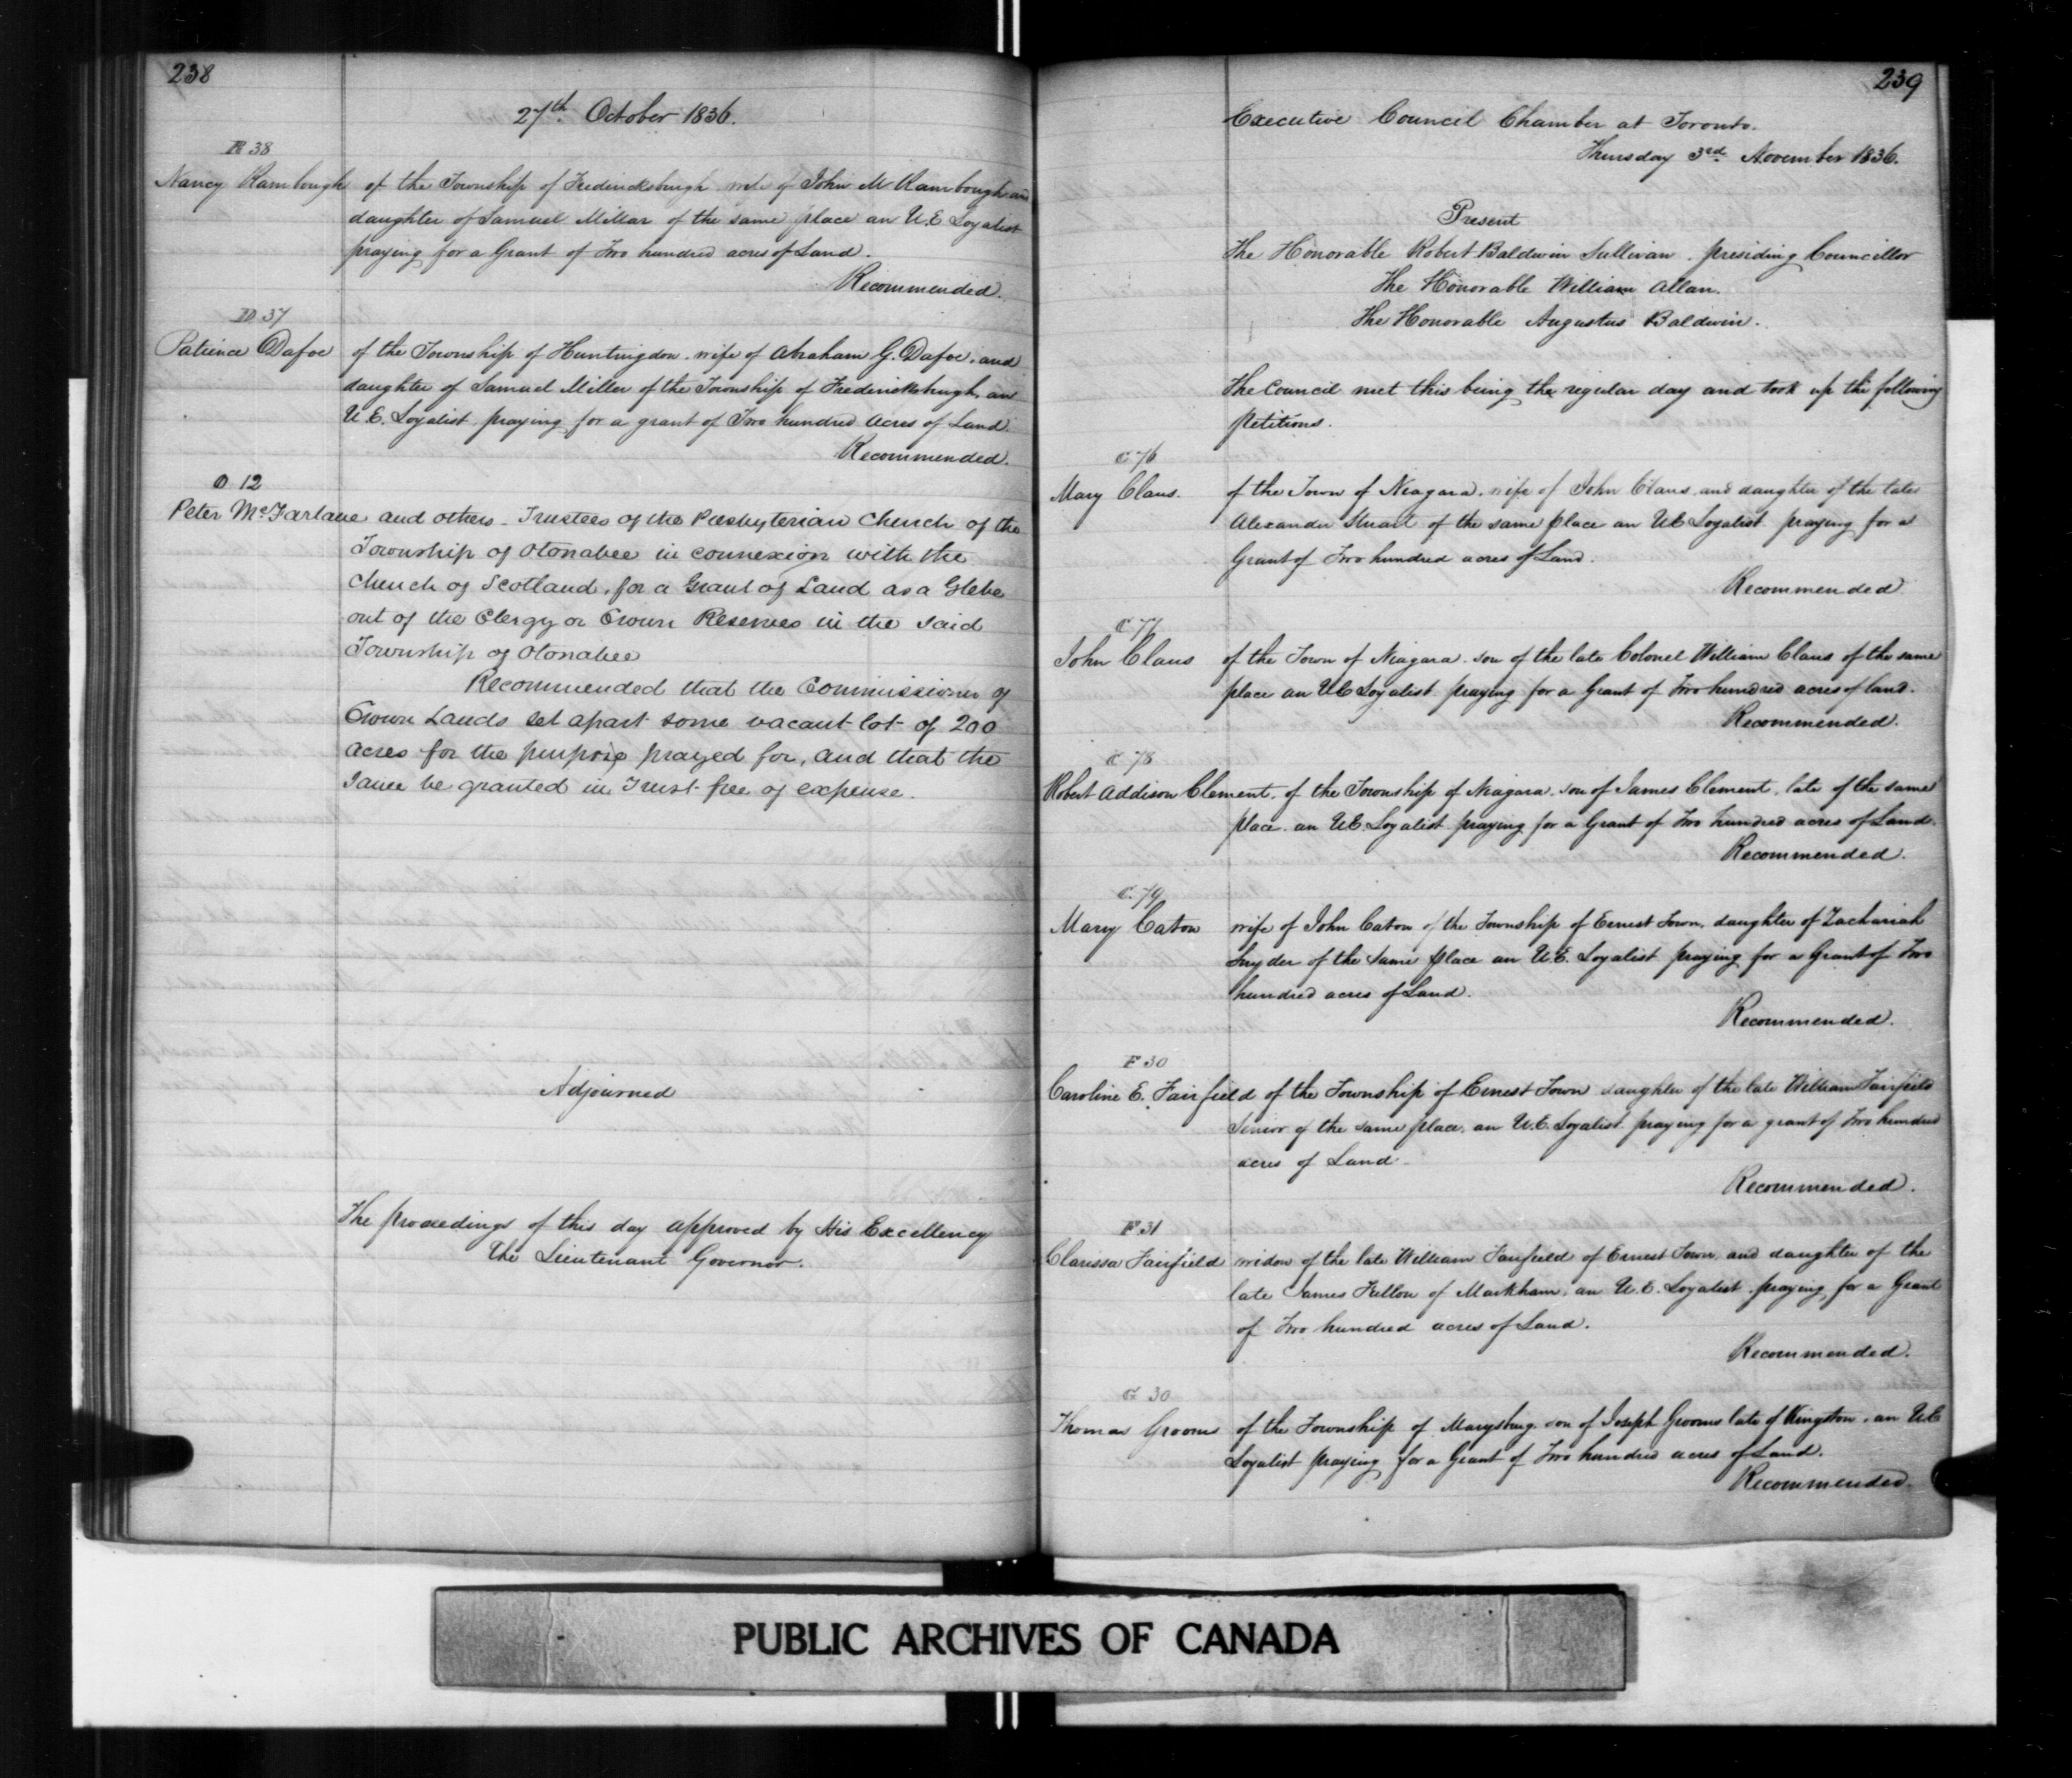 238
27th October 1836.
R 38
Nancy Rambough of the Township of Fredericksburgh wife of John M Rambough and
daughter of Samuel Millar of the same place an U.E Loyalist
praying for a Grant of Two hundred acres of Land.
Recommended.
D 37
Patience Dafoe of the Township of Huntingdon. wife of Abraham G. Dafoe. and
daughter of Samuel Miller of the Township of Fredericksburgh, an
U.E. Loyalist praying for a grant of Two hundred Acres of Land.
Recommended.
O 12
Peter McFarlane and others - Trustees of the Presbyterian Church of the
Township of Otonabee in connexion with the
Church of Scotland, for a Grant of Land as a Glebe
out of the Clergy or Crown Reserves in the said
Township of Otonabee
Recommended that the Commissioner of
Crown Lands set apart some vacant lot of 200
acres for the purpose prayed for, and that the
same be granted in Trust free of expense.
Adjourned
The proceedings of this day approved by His Excellency
The Lieutenant Governor.
239
Executive Council Chamber at Toronto.
Thursday 3rd November 1836.
Present
The Honorable Robert Baldwin Sullivan. presiding Councillor
The Honorable William Allan.
The Honorable Augustus Baldwin.
The Council met this being the regular day and took up the following
petitions.
C 76
Mary Claus. of the Town of Niagara. wife of John Claus and daughter of the late
Alexander Stuart of the same place an UE Loyalist praying for a
Grant of Two hundred acres of Land.
Recommended
C 77
John Claus of the Town of Niagara. son of the late Colonel William Claus of the same
place an UE Loyalist. praying for a Grant of Two hundred acres of land.
Recommended.
C 78
Robert Addison Clement. of the Township of Niagara. son of James Clement. late of the same
place. an UE. Loyalist praying for a Grant of Two hundred acres of Land.
Recommended.
C. 79
Mary Caton wife of John Caton of the Township of Ernest Town, daughter of Zachariah
Snyder of the same place an U.E. Loyalist praying for a Grant of Two
hundred acres of Land.
Recommended.
F 30
Caroline E. Fairfield of the Township of Ernest Town daughter of the late William Fairfield
Senior of the same place. an U.E. Loyalist praying for a grant of Two hundred
acres of Land
Recommended.
F 31
Clarissa Fairfield widow of the late William Fairfield of Ernest Town and daughter of the
late James Fulton of Markham. an U.E. Loyalist praying for a Grant
of Two hundred acres of Land.
Recommended.
G 30
Thomas Grooms of the Township of Marysburg son of Joseph Grooms late of Kingston. an UE
Loyalist praying for a Grant of Two hundred acres of Land.
Recommended.
PUBLIC ARCHIVES OF CANADA